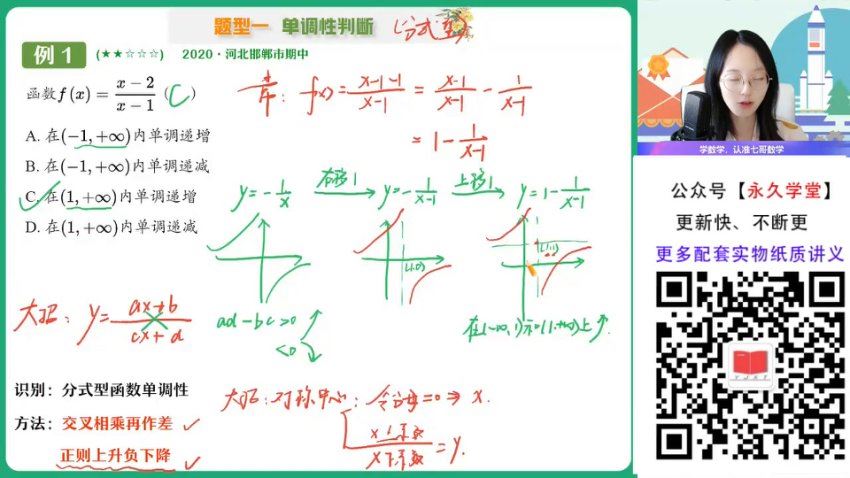 题型一 单调性判断 (分式型)
例 1 (★★☆☆☆) 2020·河北邯郸市期中
函数f(x)=\frac{x-2}{x-1} ( C )
A. 在(-1,+∞)内单调递增
B. 在(-1,+∞)内单调递减
C. 在(1,+∞)内单调递增
D. 在(1,+∞)内单调递减
f(x)=\frac{x-1-1}{x-1}=\frac{x-1}{x-1}-\frac{1}{x-1}
=1-\frac{1}{x-1}
y=-\frac{1}{x} 右移1 y=-\frac{1}{x-1} 上移1 y=1-\frac{1}{x-1}
(1,0) (1,1)
大招: y=\frac{ax+b}{cx+d} ad-bc>0
<0
在(-∞,1)和(1,+∞)上↑
识别: 分式型函数单调性
方法: 交叉相乘再作差
正则上升负下降
大招:对称中心: 令分母=0⇒x.
\frac{x上系数}{x下系数}=y.
学数学,认准七哥数学
公众号【永久学堂】
更新快、不断更
更多配套实物纸质讲义